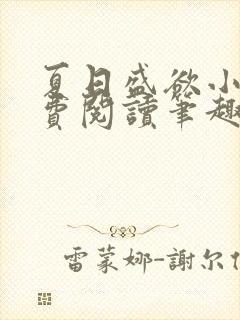 夏日盛欲小
費閱讀筆趣
雷蒙娜-謝尔